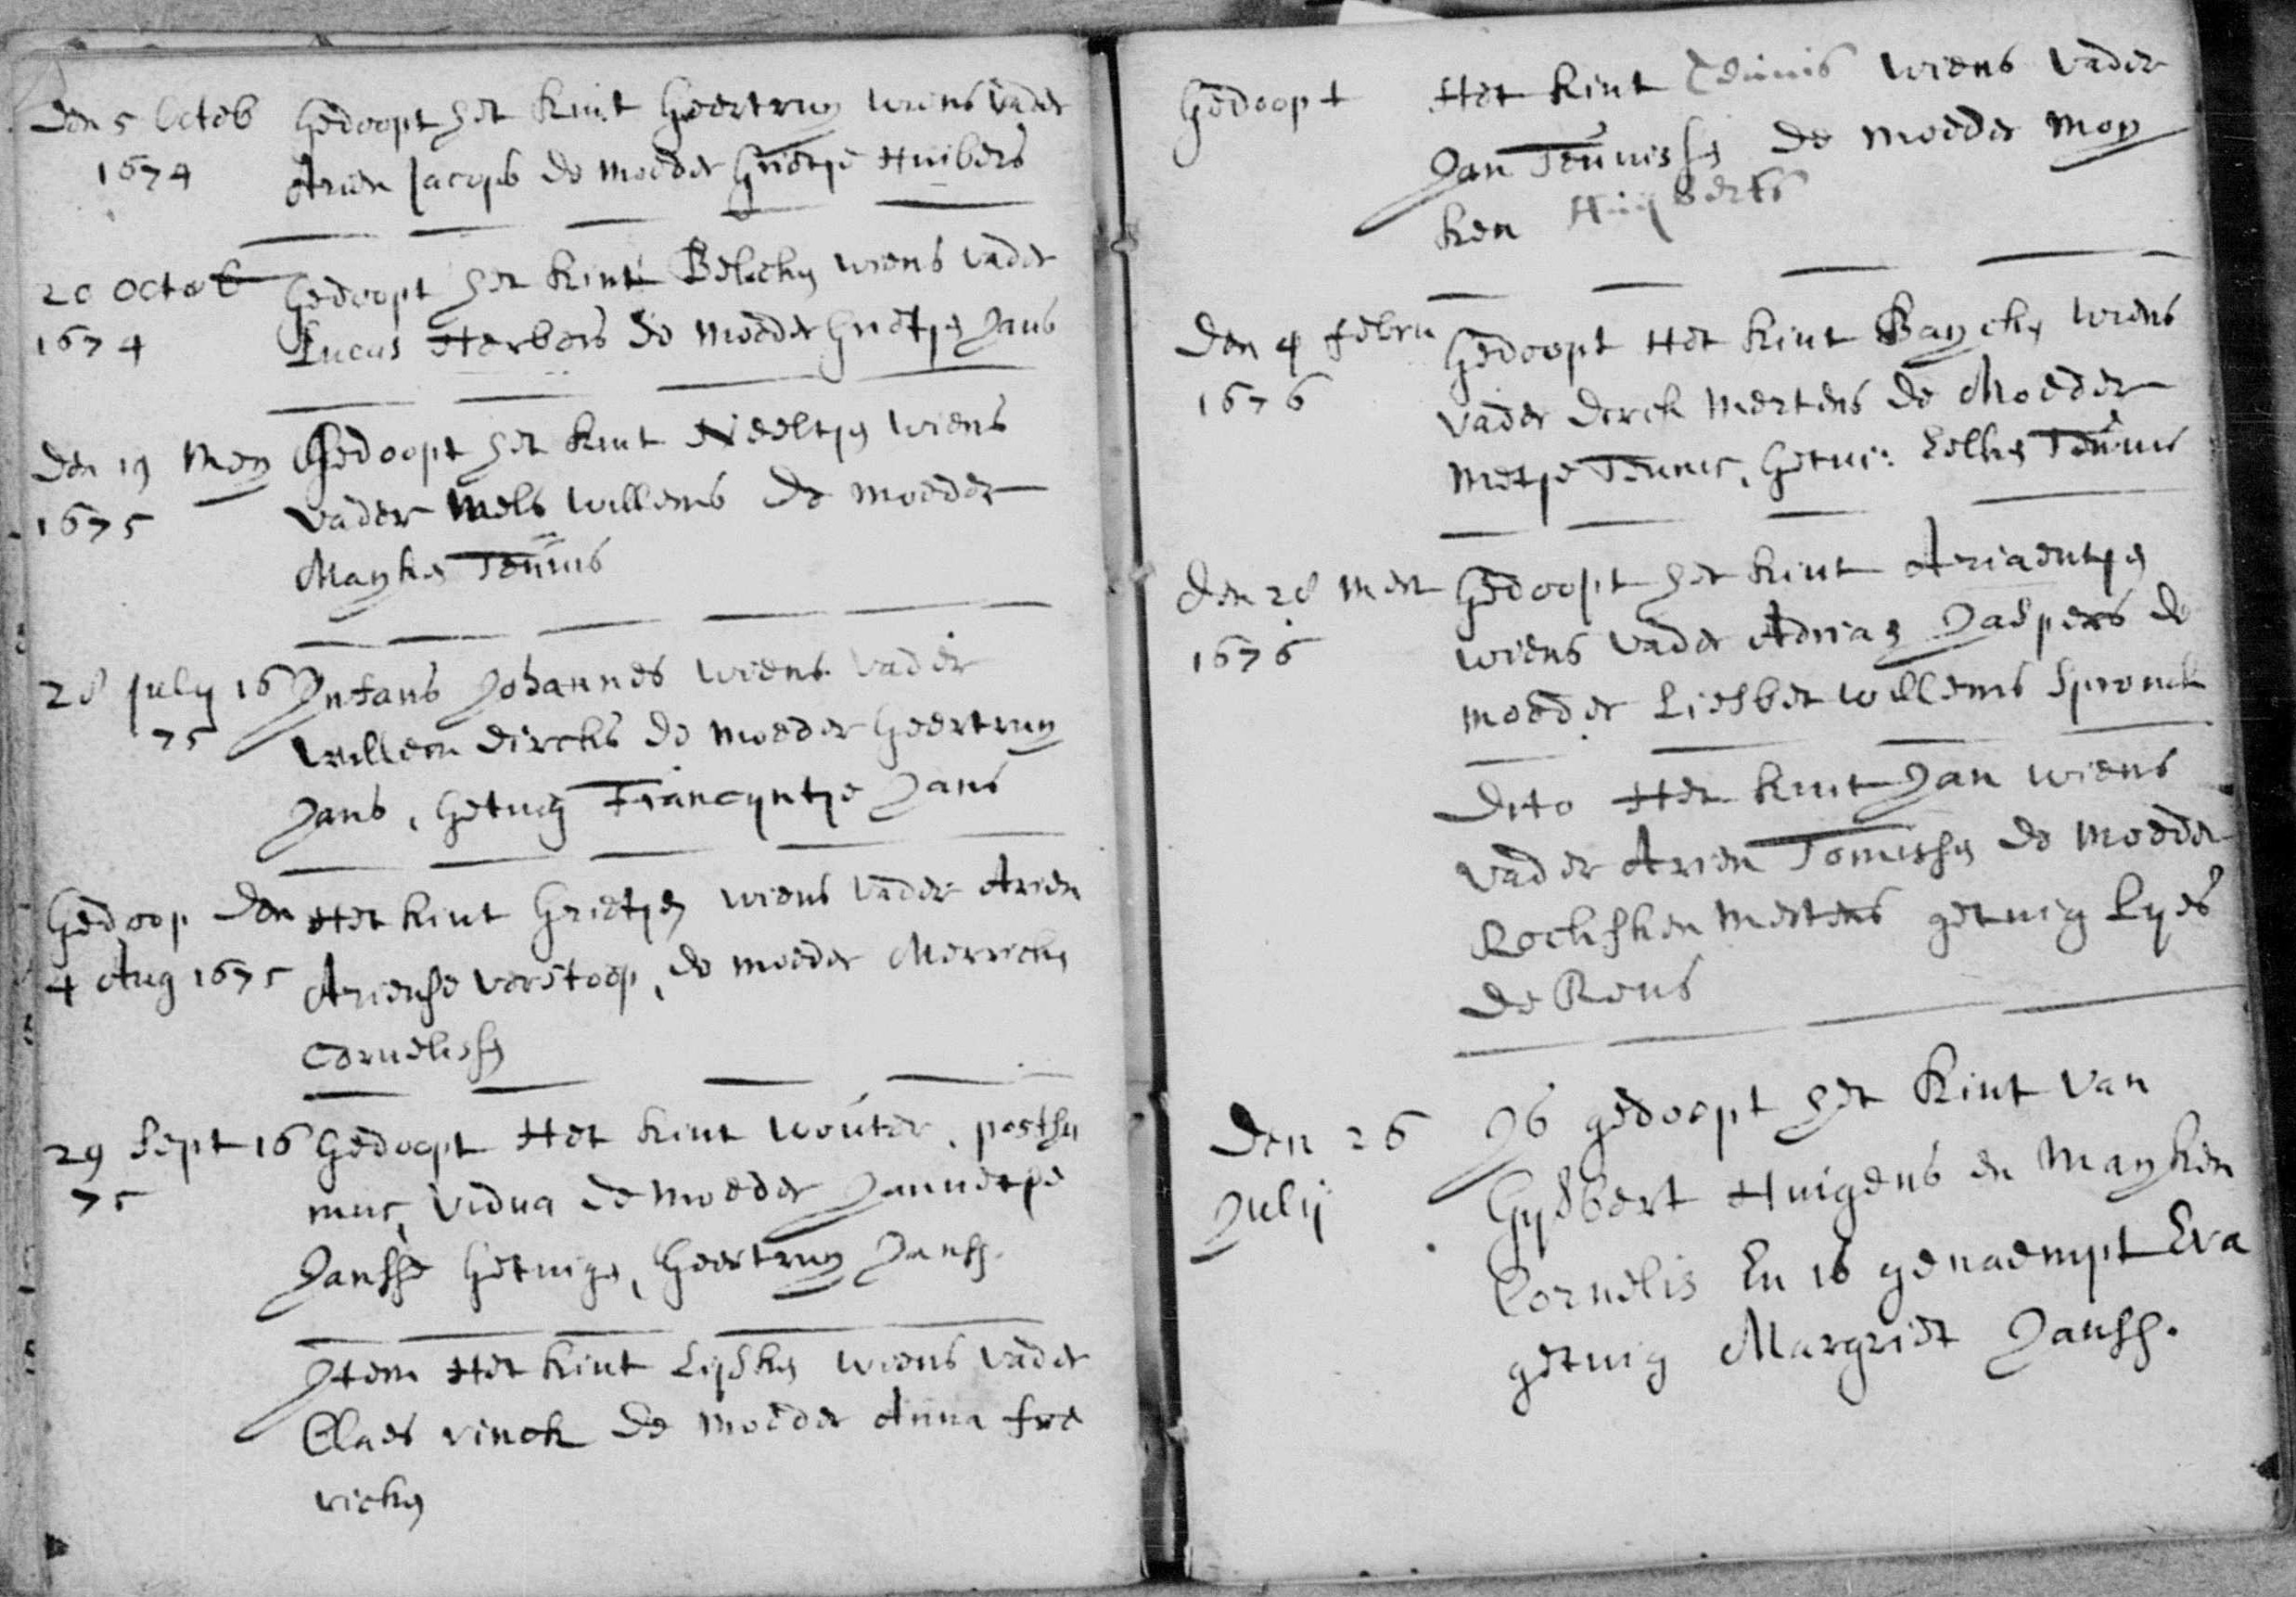 den 5 Octob Gedoopt het kint Geertruy wiens vader
1674 Arien Jacops de moeder Grietje Huibers
20 Octob Gedoopt het kint Belichy wiens vader
1674 Lucas Herbers de moeder Grietje Jans
den 19 Mey Gedoopt het kint Neeltje wiens
1675 vader Mels Willems de moeder
Mayke Teunis
28 July 16 Infans Johannes wiens vader
75 Willem Dircks de moeder Geertruy
Jans, Getuig Francyntje Jans
Gedoop den Het kint Grietje wiens vader Arien
4 Aug 1675 Ariense Verstoep, de moeder Merricke
Cornelisse
29 Sept 16 Gedoopt Het kint Wouter, posthu
75 mus, vidua de moeder Jannetje
Jansse Getuige, Geertruy Janss.
Item Het kint Lijske wiens vader
Claes Vinck de moeder Anna fre
ricks
Gedoopt Het kint Teunis wiens vader
Jan Teunisse de moeder Moy
ken Huijberts
den 4 febru Gedoopt Het kint Bayche wiens
1676 vader Derck Mertens de Moeder
Metje Teunis, Getui: Eelke Teunis
den 28 Mert Gedoopt het kint Ariaentje
1676 wiens vader Adriaen Jaspers de
moeder Liesbet Willems Spronck
Dito Het kint Jan wiens
vader Arien Tonisse de moeder
Rocksken Mertens getuig Lijs
de Rens
Den 26 Is gedoopt het kint van
Julij Gysbert Huigens en Mayken
Cornelis En is genaempt Eva
getuig Margriet Janss.